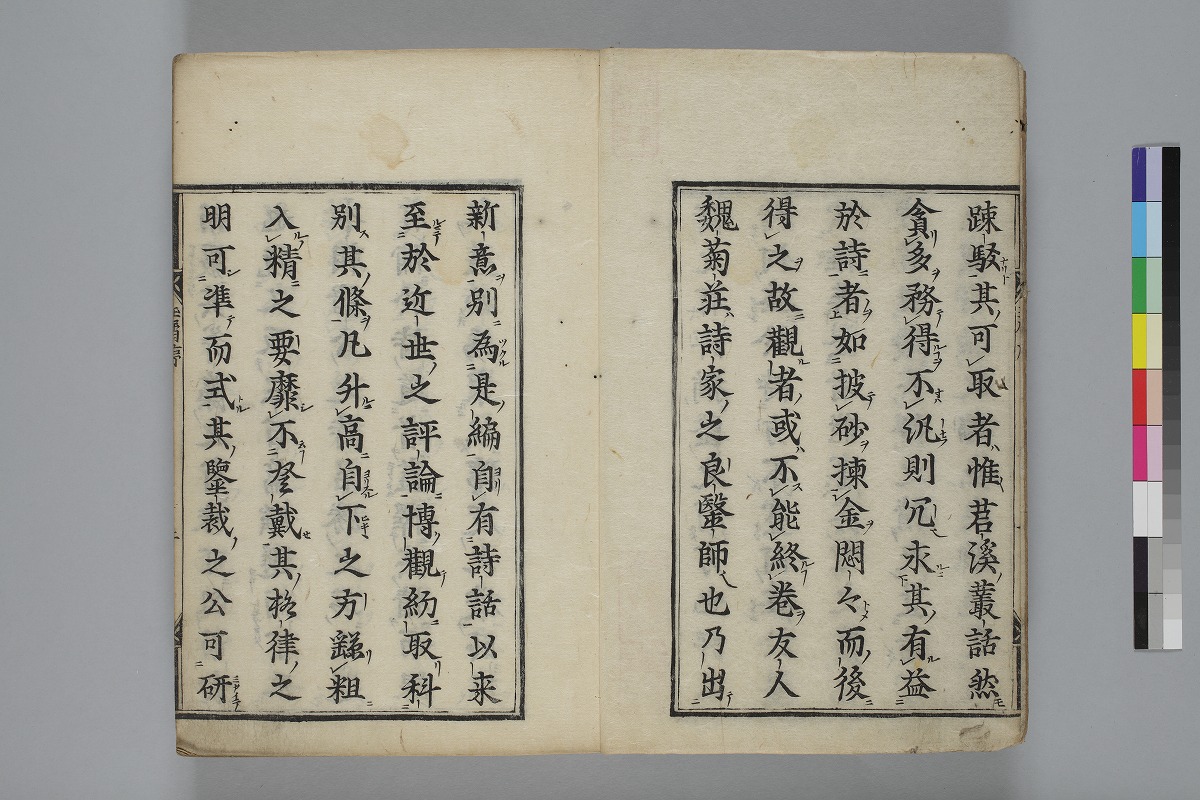 踈駁其可取者惟苕溪叢話然
貪多務得不汎則冗求其有益
於詩者如披砂揀金悶々而後
得之故觀者或不能終卷友人
魏菊莊詩家之良毉師也乃出
新意別為是編自有詩話以来
至於近世之評論博觀約取科
別其條凡升高自下之方繇粗
入精之要靡不登載其格律之
明可準而式其鑒裁之公可研